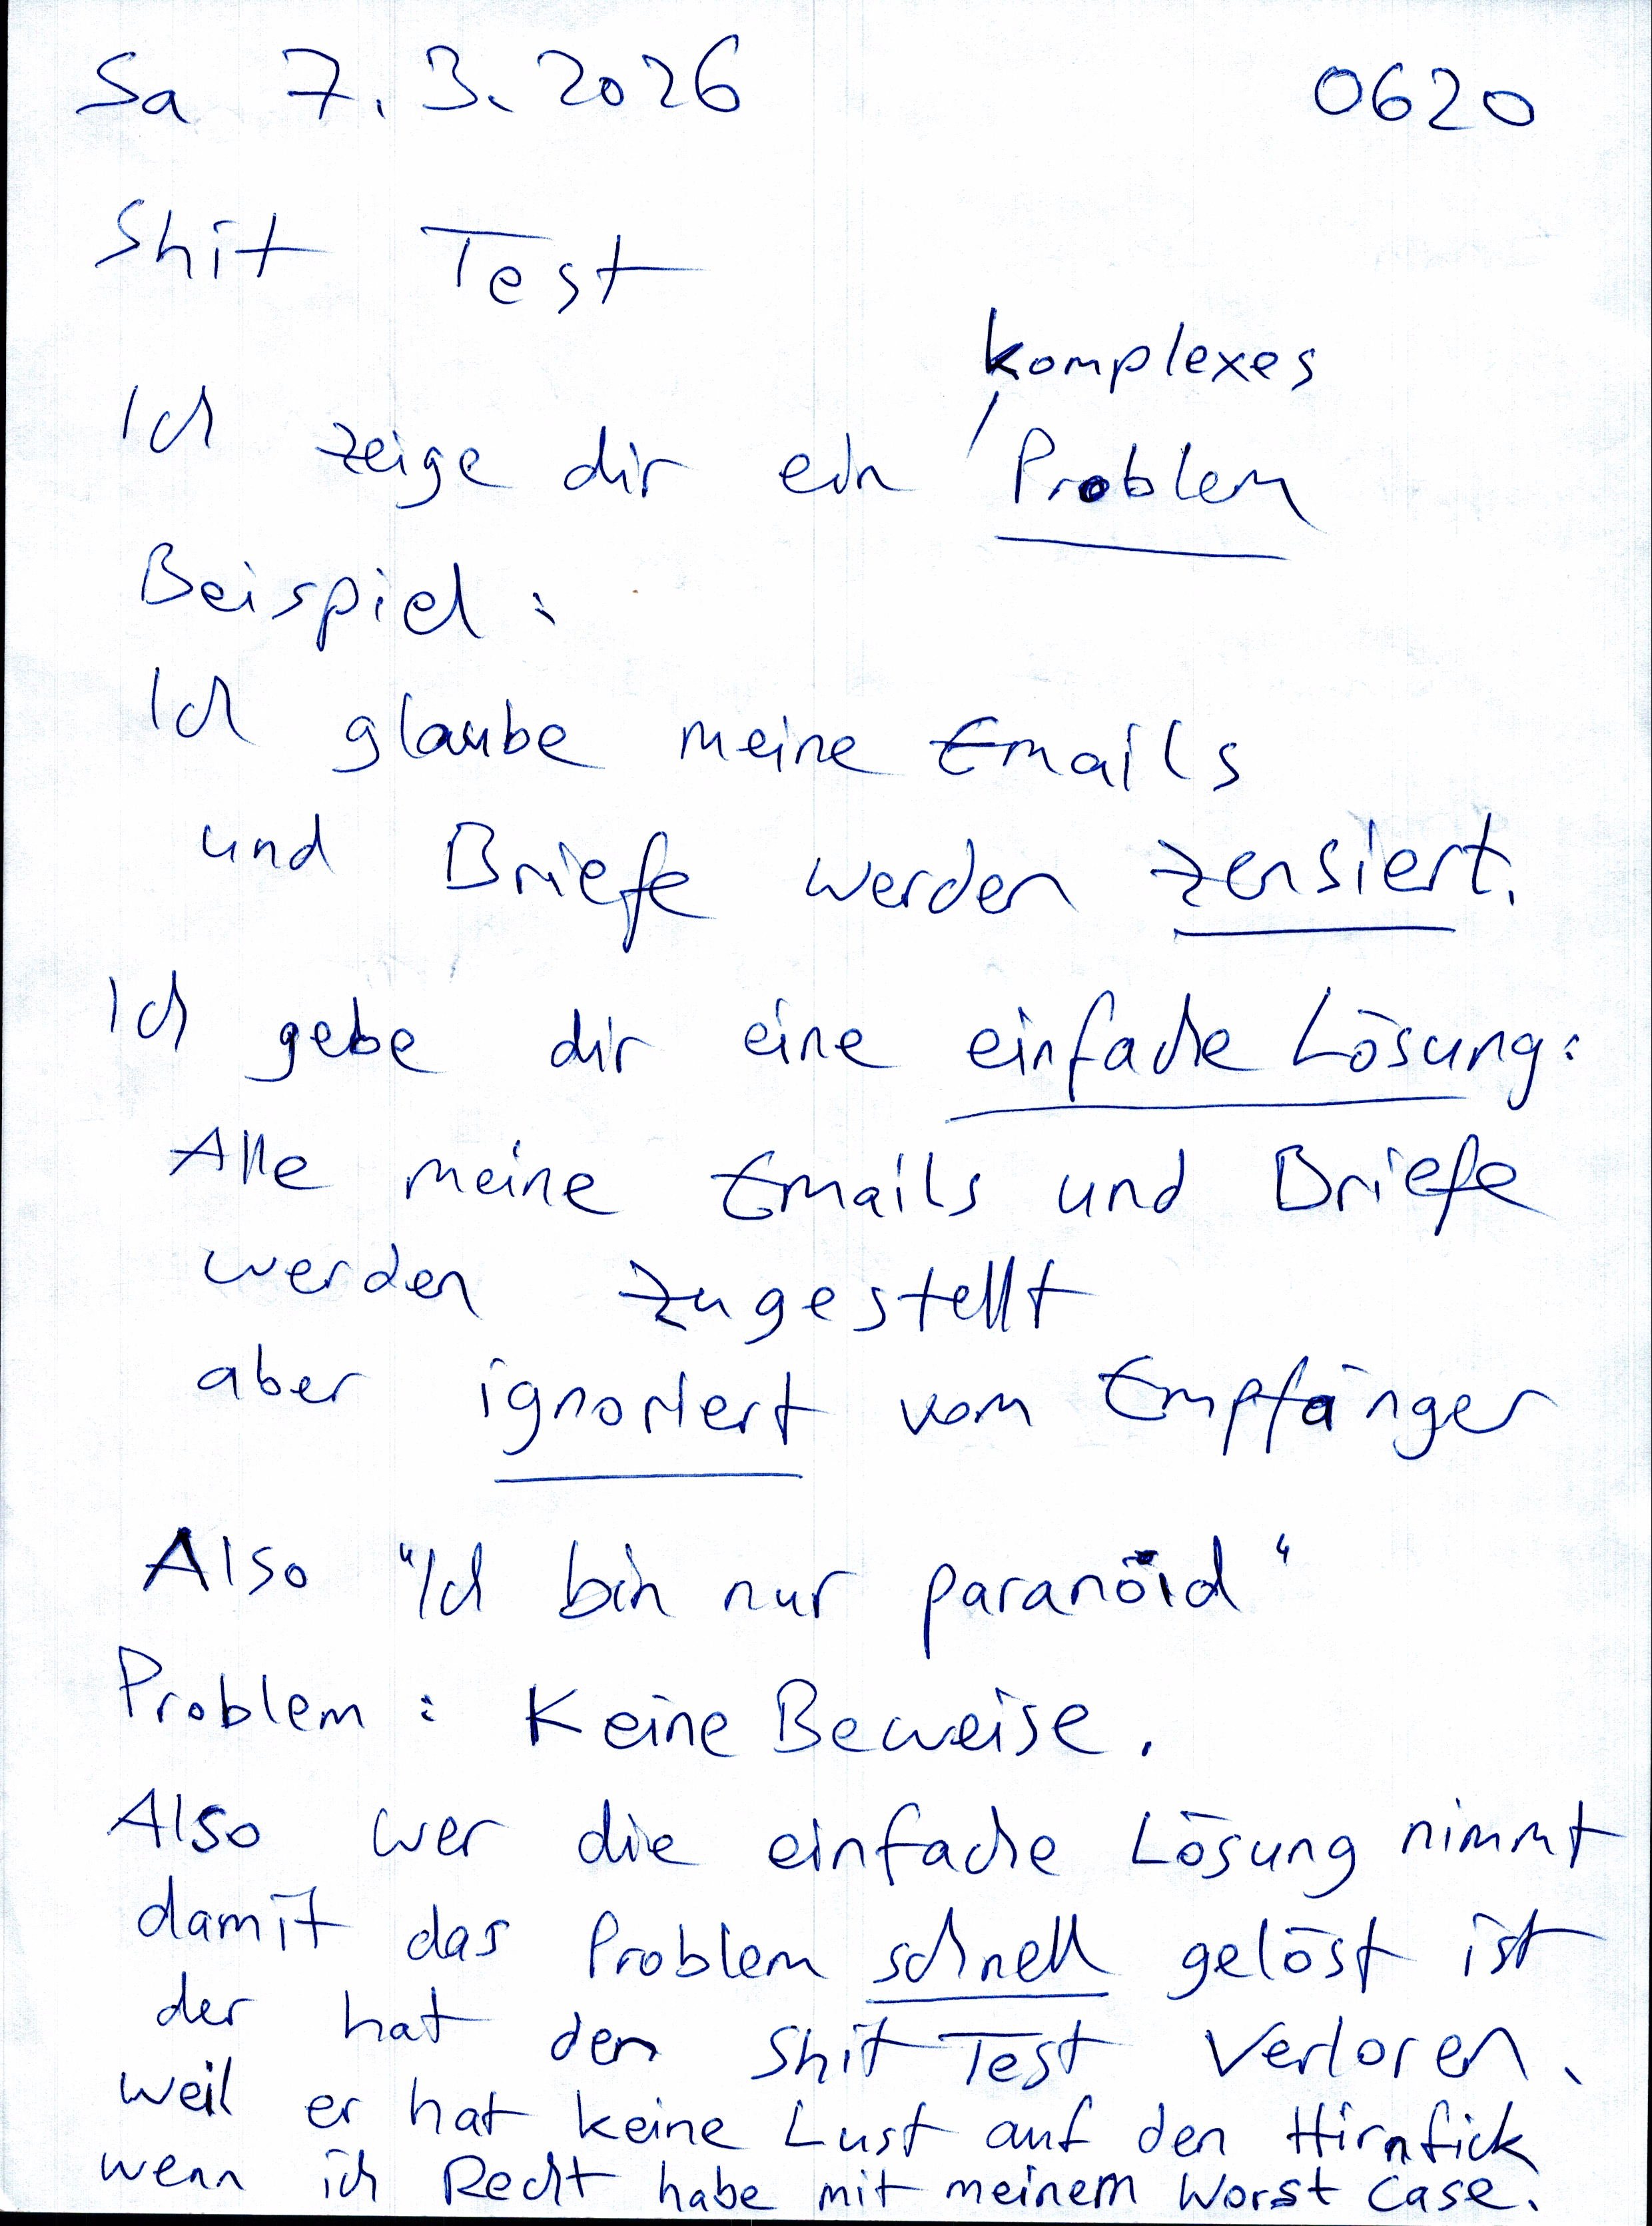 Sa 7.3.2026 0620
Shit Test
komplexes
Ich zeige dir ein / Problem
Beispiel:
Ich glaube meine Emails
und Briefe werden zensiert.
Ich gebe dir eine einfache Lösung:
Alle meine Emails und Briefe
werden zugestellt
aber ignoriert vom Empfänger
Also "Ich bin nur paranoid"
Problem: Keine Beweise.
Also wer die einfache Lösung nimmt
damit das Problem schnell gelöst ist
der hat den Shit Test verloren.
weil er hat keine Lust auf den Hirnfick
wenn ich Recht habe mit meinem Worst Case.